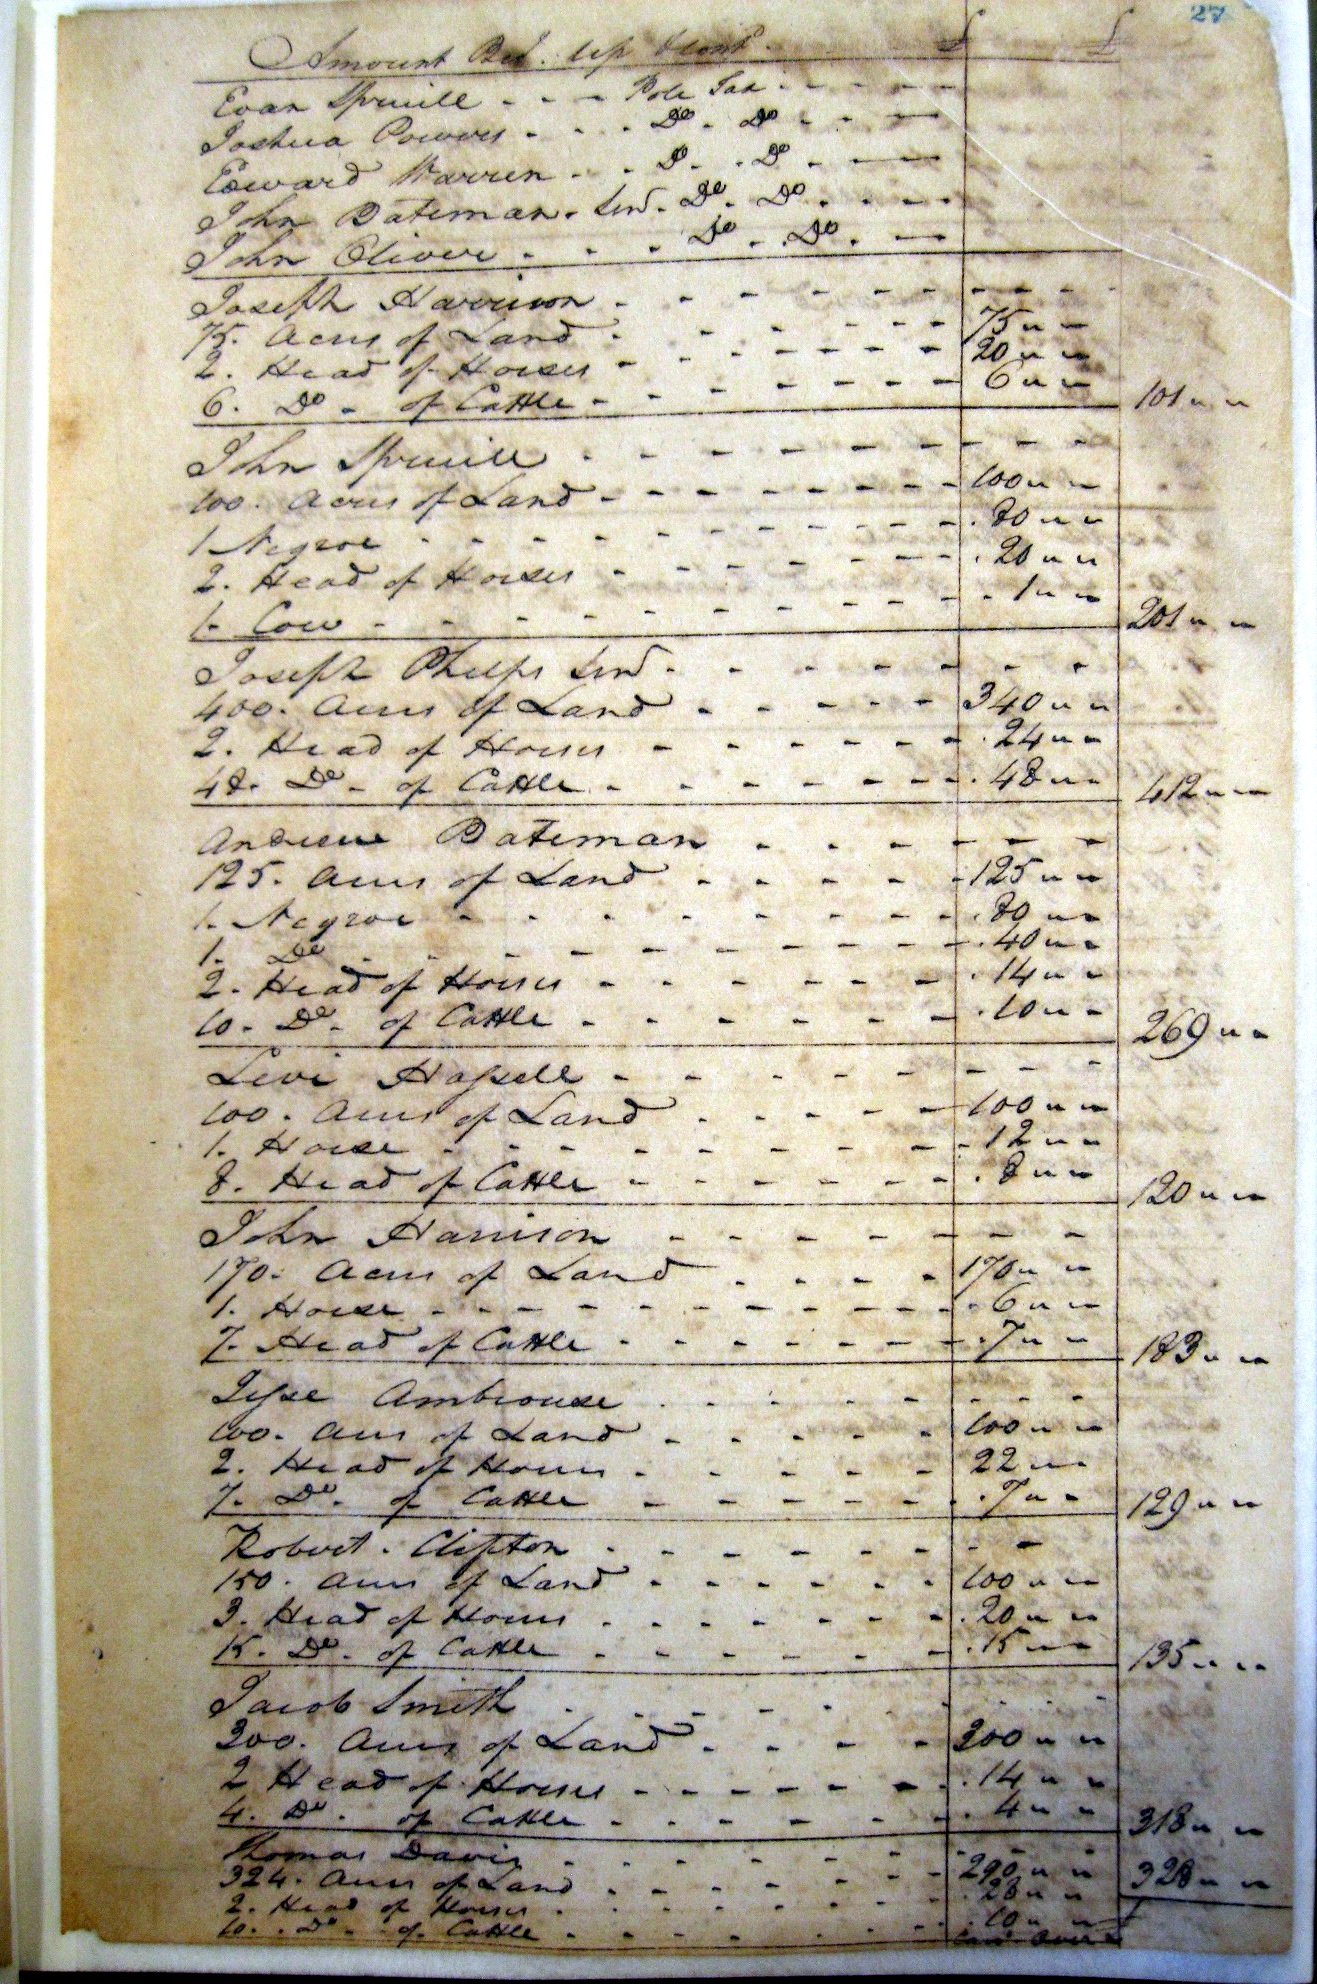 27
Amount Bot. up & Cont.d £ £
Evan Spruill - - - Pole Tax - - - - -
Joshua Powers - - - Do. Do - - -
Edward Warren - - Do. - Do - -
John Bateman. Senr. Do. Do - - - -
John Oliver - - - - Do - Do. -
Joseph Harrison - - - - - - - - - - -
75. Acres of Land - - - - - - - 75 " "
2. Head of Horses - - - - - - - 20 " "
6. Do - of Cattle - - - - - - - 6 " " 101 " "
John Spruill - - - - - - - - - -
100. Acres of Land - - - - - - - - 100 " "
1 Negroe - - - - - - - - - 80 " "
2. Head of Horses - - - - - - - 20 " "
1. Cow - - - - - - - - - 1 " " 201 " "
Joseph Phelps Senr. - - - - - - - -
400. Acres of Land - - - - - 340 " "
2. Head of Horses - - - - - - 24 " "
48. Do - of Cattle - - - - - - - 48 " " 412 " "
Andrew Bateman - - - - - - -
125. Acres of Land - - - - - 125 " "
1. Negroe - - - - - - - - 80 " "
1. Do - - - - - - - - - 40 " "
2. Head of Horses - - - - - - 14 " "
10. Do. of Cattle - - - - - - 10 " " 269 " "
Levi Hassell - - - - - - - - -
100. Acres of Land - - - - - 100 " "
1. Horse - - - - - - - - 12 " "
8. Head of Cattle - - - - - - 8 " " 120 " "
John Harrison - - - - - - - -
170. Acres of Land - - - - 170 " "
1. Horse - - - - - - - - - - 6 " "
7. Head of Cattle - - - - - - 7 " " 183 " "
Jesse Ambrouse - - - - - - - -
100. Acres of Land - - - - - 100 " "
2. Head of Horses - - - - - 22 " "
7. Do. of Cattle - - - - - - 7 " " 129 " "
Robert. Clifton - - - - - - - - -
150. Acres of Land - - - - - - 100 " "
3. Head of Horses - - - - - - - 20 " "
15. Do - of Cattle - - - - - - 15 " " 135 " "
Jacob Smith - - - - - - - -
300. Acres of Land - - - - 300 " "
2 Head of Horses - - - - - - 14 " "
4. Do. of Cattle - - - - - - 4 " " 318 " "
Thomas Davis - - - - - - - - -
324. Acres of Land - - - - - - 290 " " 328 " "
2. Head of Horses - - - - - - - 28 " "
10. Do - of Cattle - - - - - - - 10 " "
Card. Over